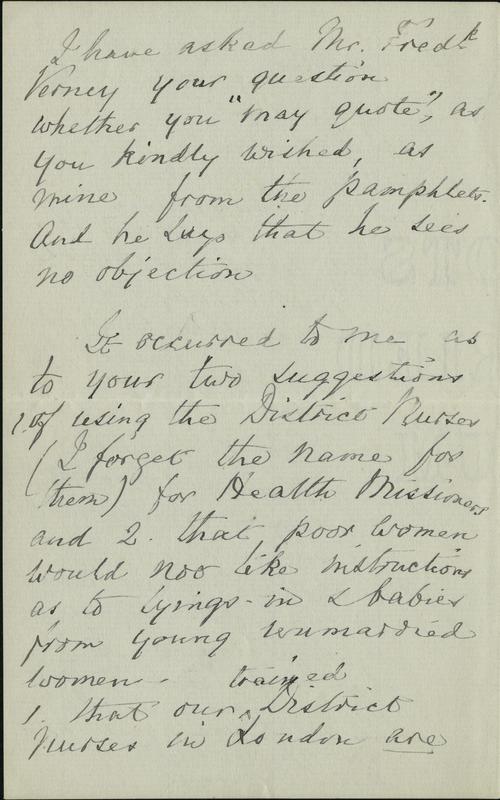 I have asked Mr. Fredk
Verney your question
whether you "may quote", as
you kindly wished, as
mine from the pamphlets.
And he says that he sees
no objection
It occurred to me as
to your two suggestions
1. of using the District Nurses
(I forget the name for
them) for Health Missioners
and 2. that poor women
would not like instructions
as to lyings-in & babies
from young unmarried
women -
1. that our trained District
Nurses in London are